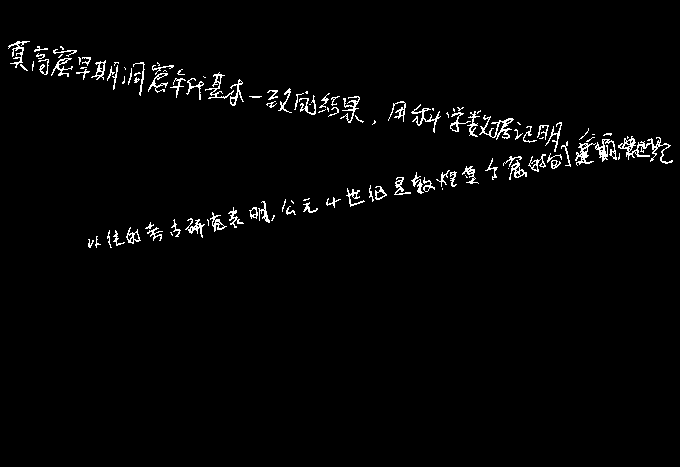 莫高窟早期洞窟年代基本一致的结果，用科学数据证明
以往的考古研究表明，公元4世纪是敦煌莫高窟的创建